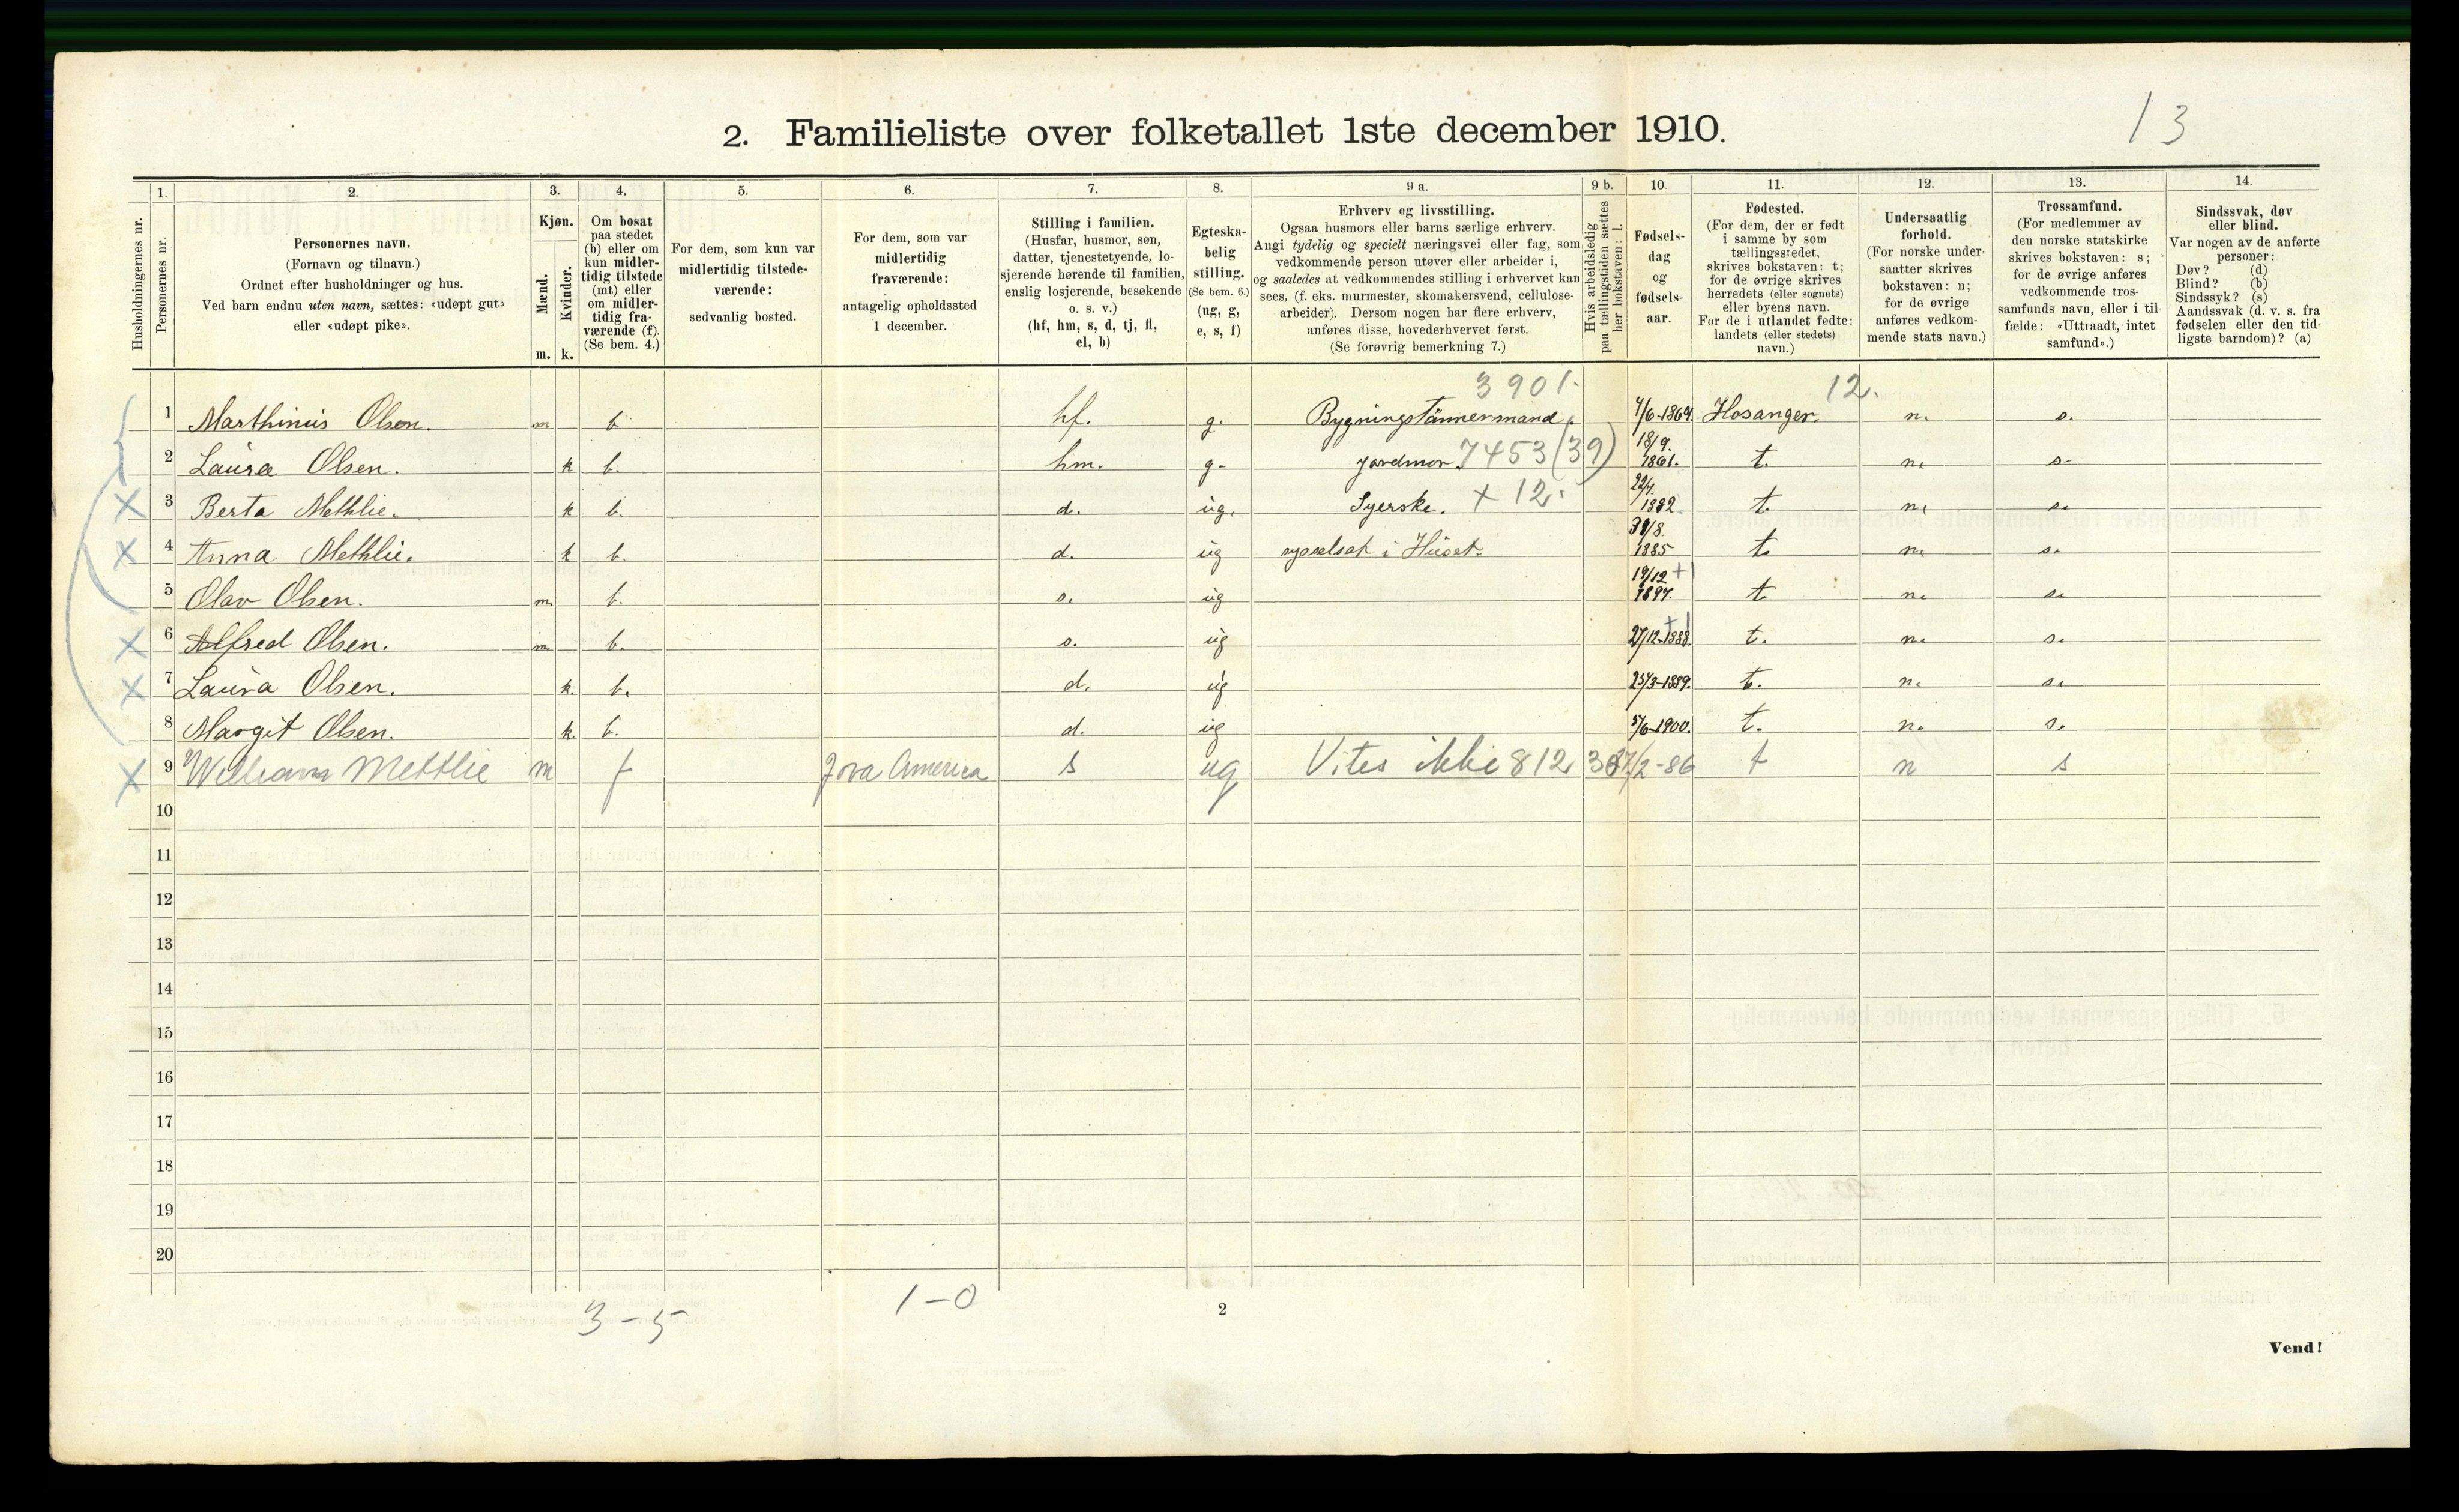 13
2. Familieliste over folketallet 1ste december 1910.
Husholdningernes nr.
1. Personernes nr.
2. Personernes navn.
(Fornavn og tilnavn.)
Ordnet efter husholdninger og hus.
Ved barn endnu uten navn, sættes: «udøpt gut»
eller «udøpt pike».
3. Kjøn.
Mænd. m.
Kvinder. k.
4. Om bosat
paa stedet
(b) eller om
kun midler-
tidig tilstede
(mt) eller
om midler-
tidig fra-
værende (f).
(Se bem. 4.)
5. For dem, som kun var
midlertidig tilstede-
værende:
sedvanlig bosted.
6. For dem, som var
midlertidig
fraværende:
antagelig opholdssted
1 december.
7. Stilling i familien.
(Husfar, husmor, søn,
datter, tjenestetyende, lo-
sjerende hørende til familien,
enslig losjerende, besøkende
o. s. v.)
(hf, hm, s, d, tj, fl,
el, b)
8. Egteska-
belig
stilling.
(Se bem. 6.)
(ug, g,
e, s, f)
9 a. Erhverv og livsstilling.
Ogsaa husmors eller barns særlige erhverv.
Angi tydelig og specielt næringsvei eller fag, som
vedkommende person utøver eller arbeider i,
og saaledes at vedkommendes stilling i erhvervet kan
sees, (f. eks. murmester, skomakersvend, cellulose-
arbeider). Dersom nogen har flere erhverv,
anføres disse, hovederhvervet først.
(Se forøvrig bemerkning 7.)
9 b. Hvis arbeidsledig
paa tællingstiden sættes
her bokstaven: l.
10. Fødsels-
dag
og
fødsels-
aar.
11. Fødested.
(For dem, der er født
i samme by som
tællingsstedet,
skrives bokstaven: t;
for de øvrige skrives
herredets (eller sognets)
eller byens navn.
For de i utlandet fødte:
landets (eller stedets)
navn.)
12. Undersaatlig
forhold.
(For norske under-
saatter skrives
bokstaven: n;
for de øvrige
anføres vedkom-
mende stats navn.)
13. Trossamfund.
(For medlemmer av
den norske statskirke
skrives bokstaven: s;
for de øvrige anføres
vedkommende tros-
samfunds navn, eller i til-
fælde: «Uttraadt, intet
samfund».)
14. Sindssvak, døv
eller blind.
Var nogen av de anførte
personer:
Døv? (d)
Blind? (b)
Sindssyk? (s)
Aandssvak (d. v. s. fra
fødselen eller den tid-
ligste barndom)? (a)
3901. 12.
1 Marthinius Olsen. m b hf. g. Bygningstømmermand. 4/6-1864. Hosanger. n. s.
2 Laura Olsen. k b. hm. g. Jordmor. 7453 (39) 18/9. 1861. t. n. s.
X 3 Berta Methlie. k b. d. ug. Syerske. + 12. 22/4. 1882 t. n. s.
X 4 Anna Methlie. k b. d. ug sysselsat i Huset. 31/8. 1885 t. n. s.
5 Olav Olsen. m. b. s. ug 19/12 1897. +1 t. n. s.
X 6 Alfred Olsen. m b. s. ug 27/12-1888 +1 t. n. s.
X 7 Laura Olsen. k. b. d. ug 25/3-1889. t. n. s.
8 Margit Olsen. k. b. d. ug 5/6-1900. t. n. s.
X 9 William Methlie m f Jova America s ug Vites ikke 812 /2-86 t n s
10
11
12
13
14
15
16
17
18
19
20
3-5 1-0
2
Vend!